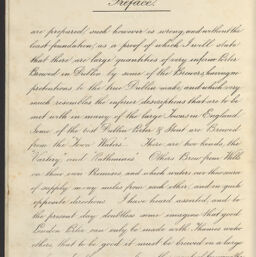 Preface.
are prepared, such however is wrong, and without the
least foundation; as a proof of which I will state
that there are large quantities of very inferior Porter
Brewed in Dublin by some of the Brewers, having no
pretentions to the true Dublin make, and which very
much resembles the inferior descriptions that are to be
met with in many of the large Towns in England.
Some of the best Dublin Porter & Stout are Brewed
from the Town Waters. There are two kinds, the
"Vartry" and "Rathmines". Others Brew from Wells
on their own Premises, and which waters owe their source
of supply many miles from each other, and in quite
opposite directions. I have heard asserted, and to
the present day doubtless some imagine that good
London Porter can only be made with Thames water
others, that to be good it must be brewed in a large